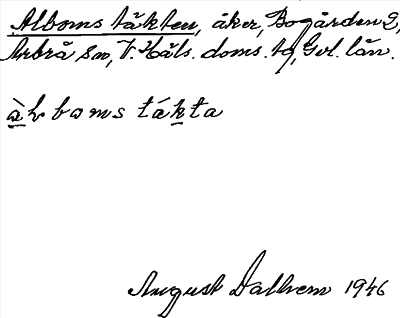 Alboms täkten, åker, Bogården 2,
Arbrå sn, V. Häls. doms. tg, Gvl. län.
àlbomstákta
August Dallrem 1946